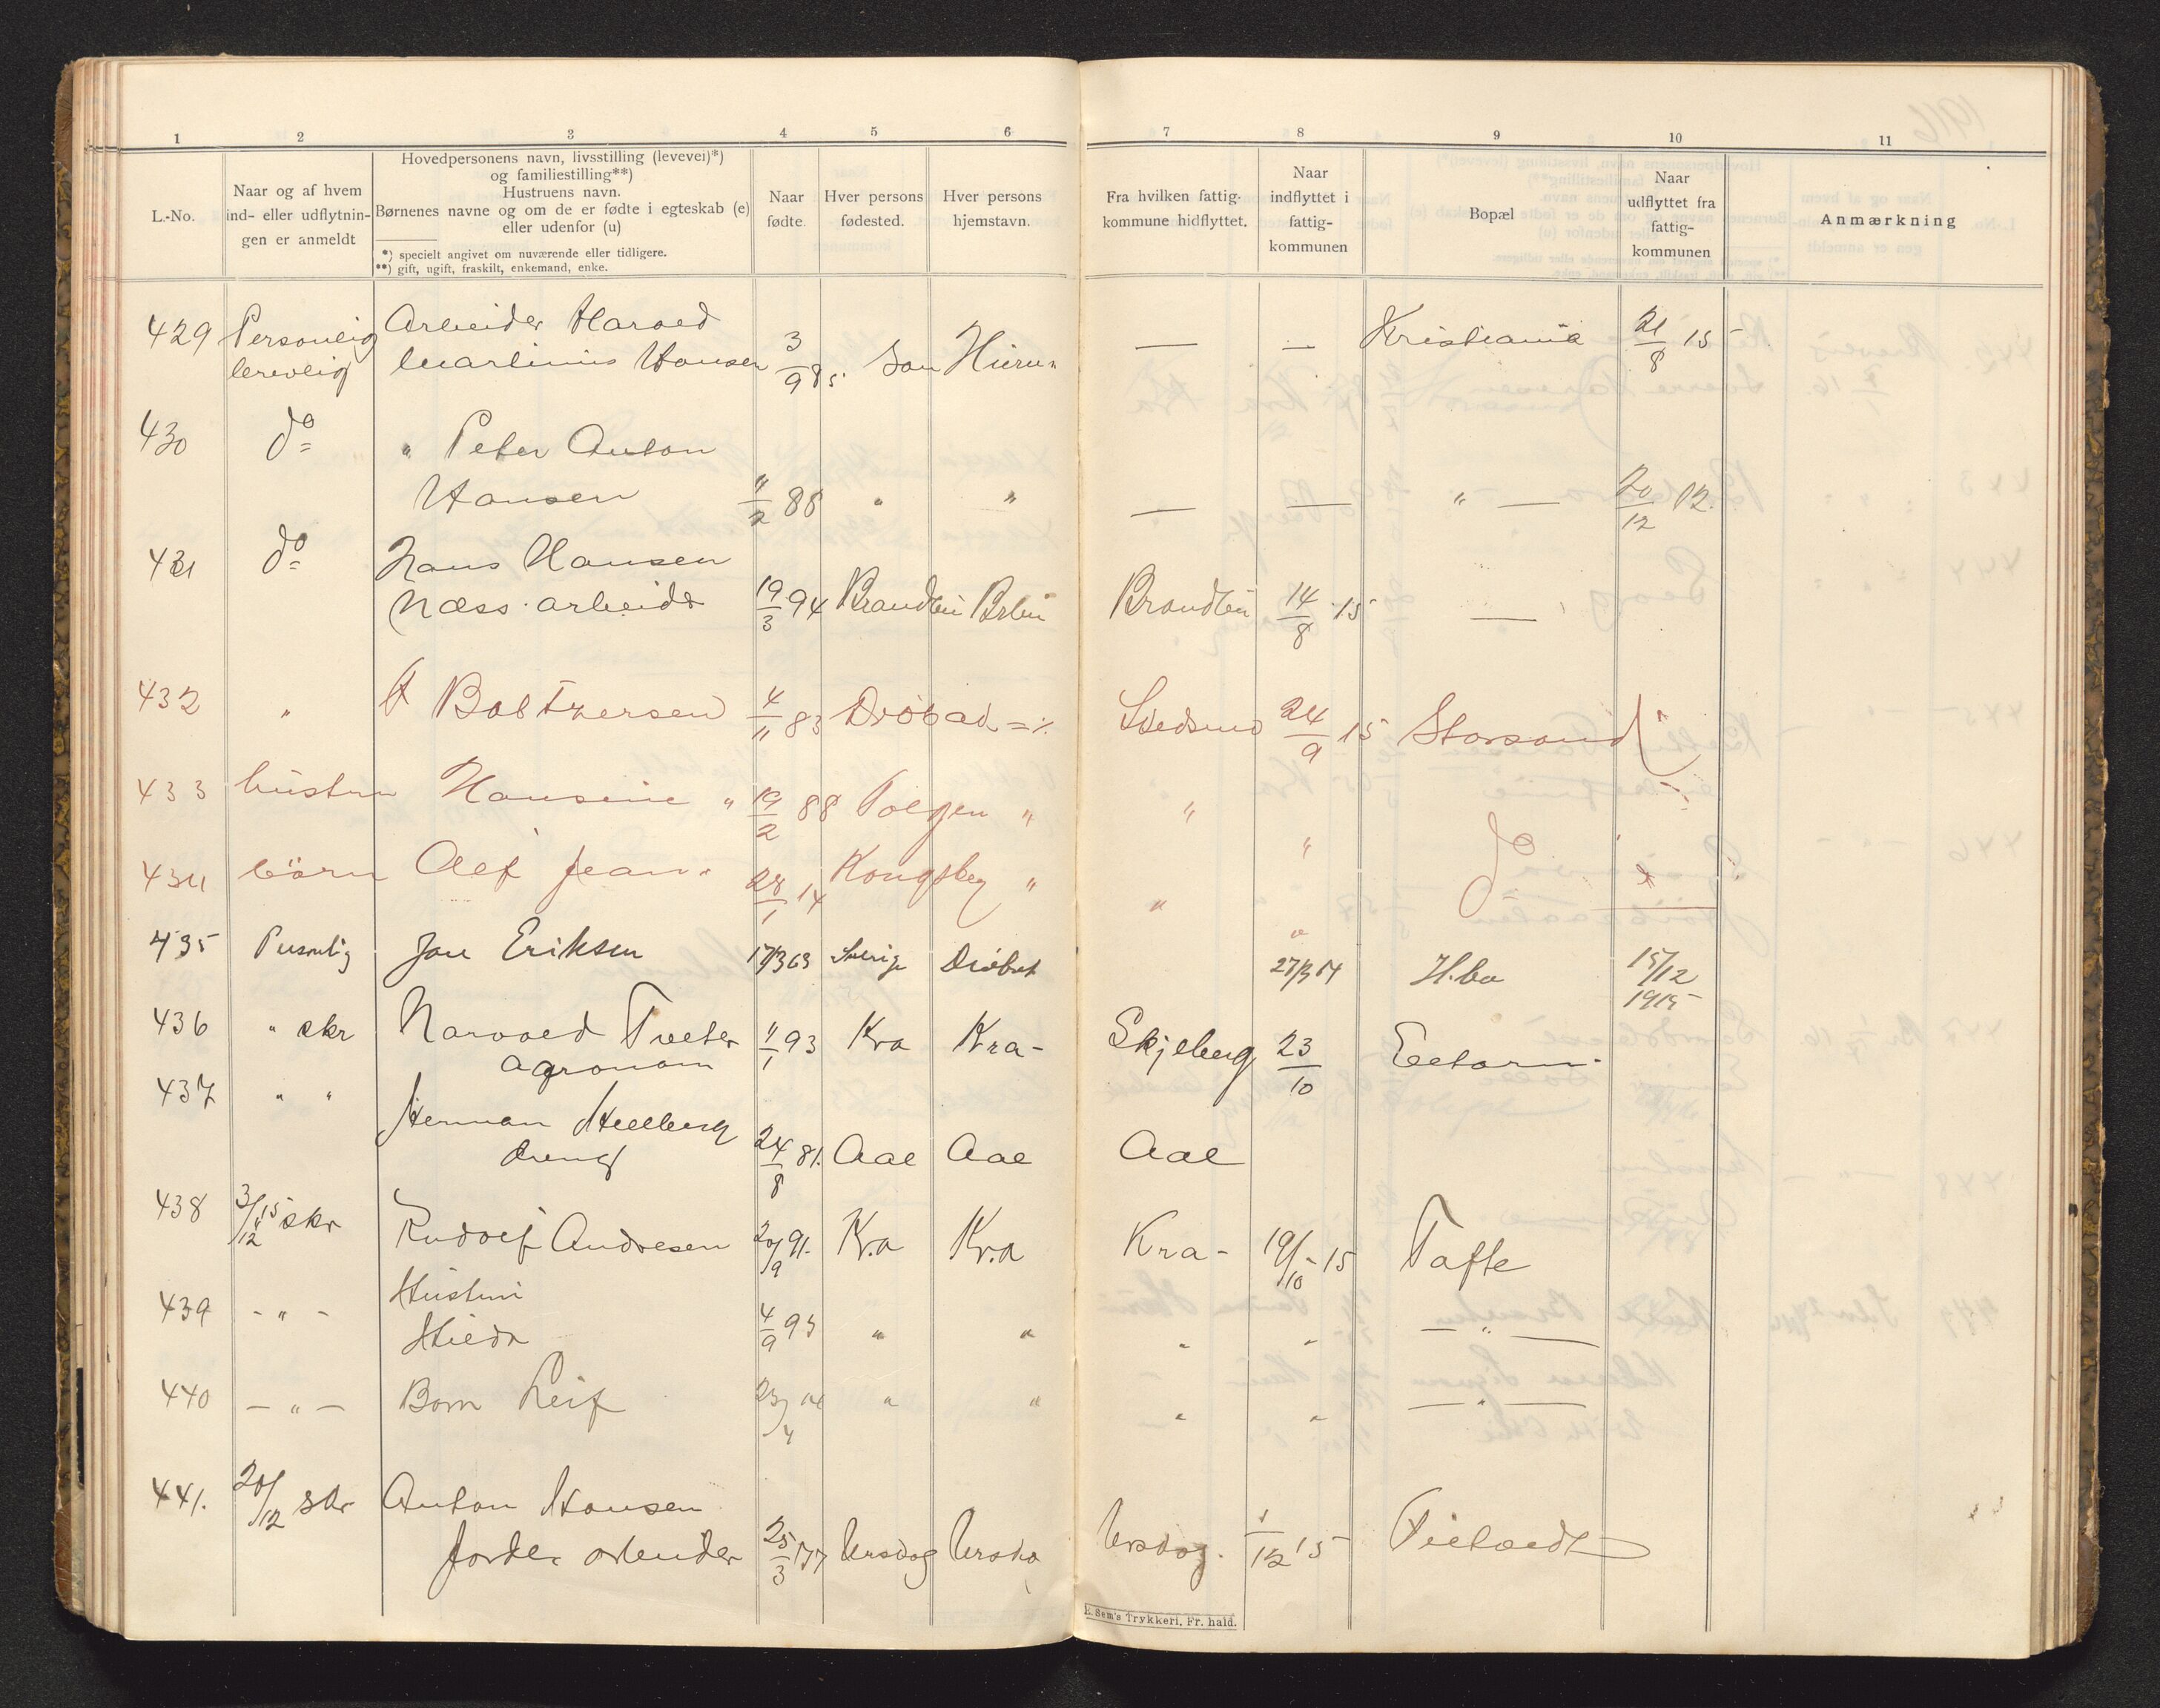 1 2 3 4 5 6 7 8 9 10 11
L.-No.
Naar og af hvem
ind- eller udflytnin-
gen er anmeldt
Hovedpersonens navn, livsstilling (levevei)*)
og familiestilling**)
Hustruens navn.
Børnenes navne og om de er fødte i egteskab (e)
eller udenfor (u)
*) specielt angivet om nuværende eller tidligere.
**) gift, ugift, fraskilt, enkemand, enke.
Naar
fødte.
Hver persons
fødested.
Hver persons
hjemstavn.
Fra hvilken fattig-
kommune hidflyttet.
Naar
indflyttet i
fattig-
kommunen
Bopæl
Naar
udflyttet fra
fattig-
kommunen
Anmærkning
429 Personlig Arbeider Harald Kristiania 21/8 15
Martinius Hansen 3/9 85 —  —
430 do " Peter Anton
Hansen 11/2 88 " " — — " — 20/12 12.
431 do Hans Hansen
Næss arbeider 19/3 94 Brandbu Brbu Brandbu 14/8 15 —
432 " 4/11 83 Drøbak 24/9 15 Storsand
433 hustru Hansine " 19/2 88 " " "
434 børn Alf Jean 28/1 14 Kongsberg " " do
435 Personlig Eriksen 17/3 63 Sverige Drøbak H.bo 15/12
1915
436 " skr Tveter 11/1 93 Kra Kra- Skjeberg 23/10
agronom
437 " " Herman
dreng 24/8 81. Aal Aal Aal
438 3/12 15 skr Rudolf Andresen 20/9 91. Kra Kra Kra- 19/10-15 Tofte
439 - " - Hustru
Hilda 4/9 93 " " " " — " —
440 — " — Barn Leif " " " " — " —
441. 20/12 skr Anton Hansen
25/3 77 Ursdog 1/12 15
E. Sem's Trykkeri, Fr. hald.